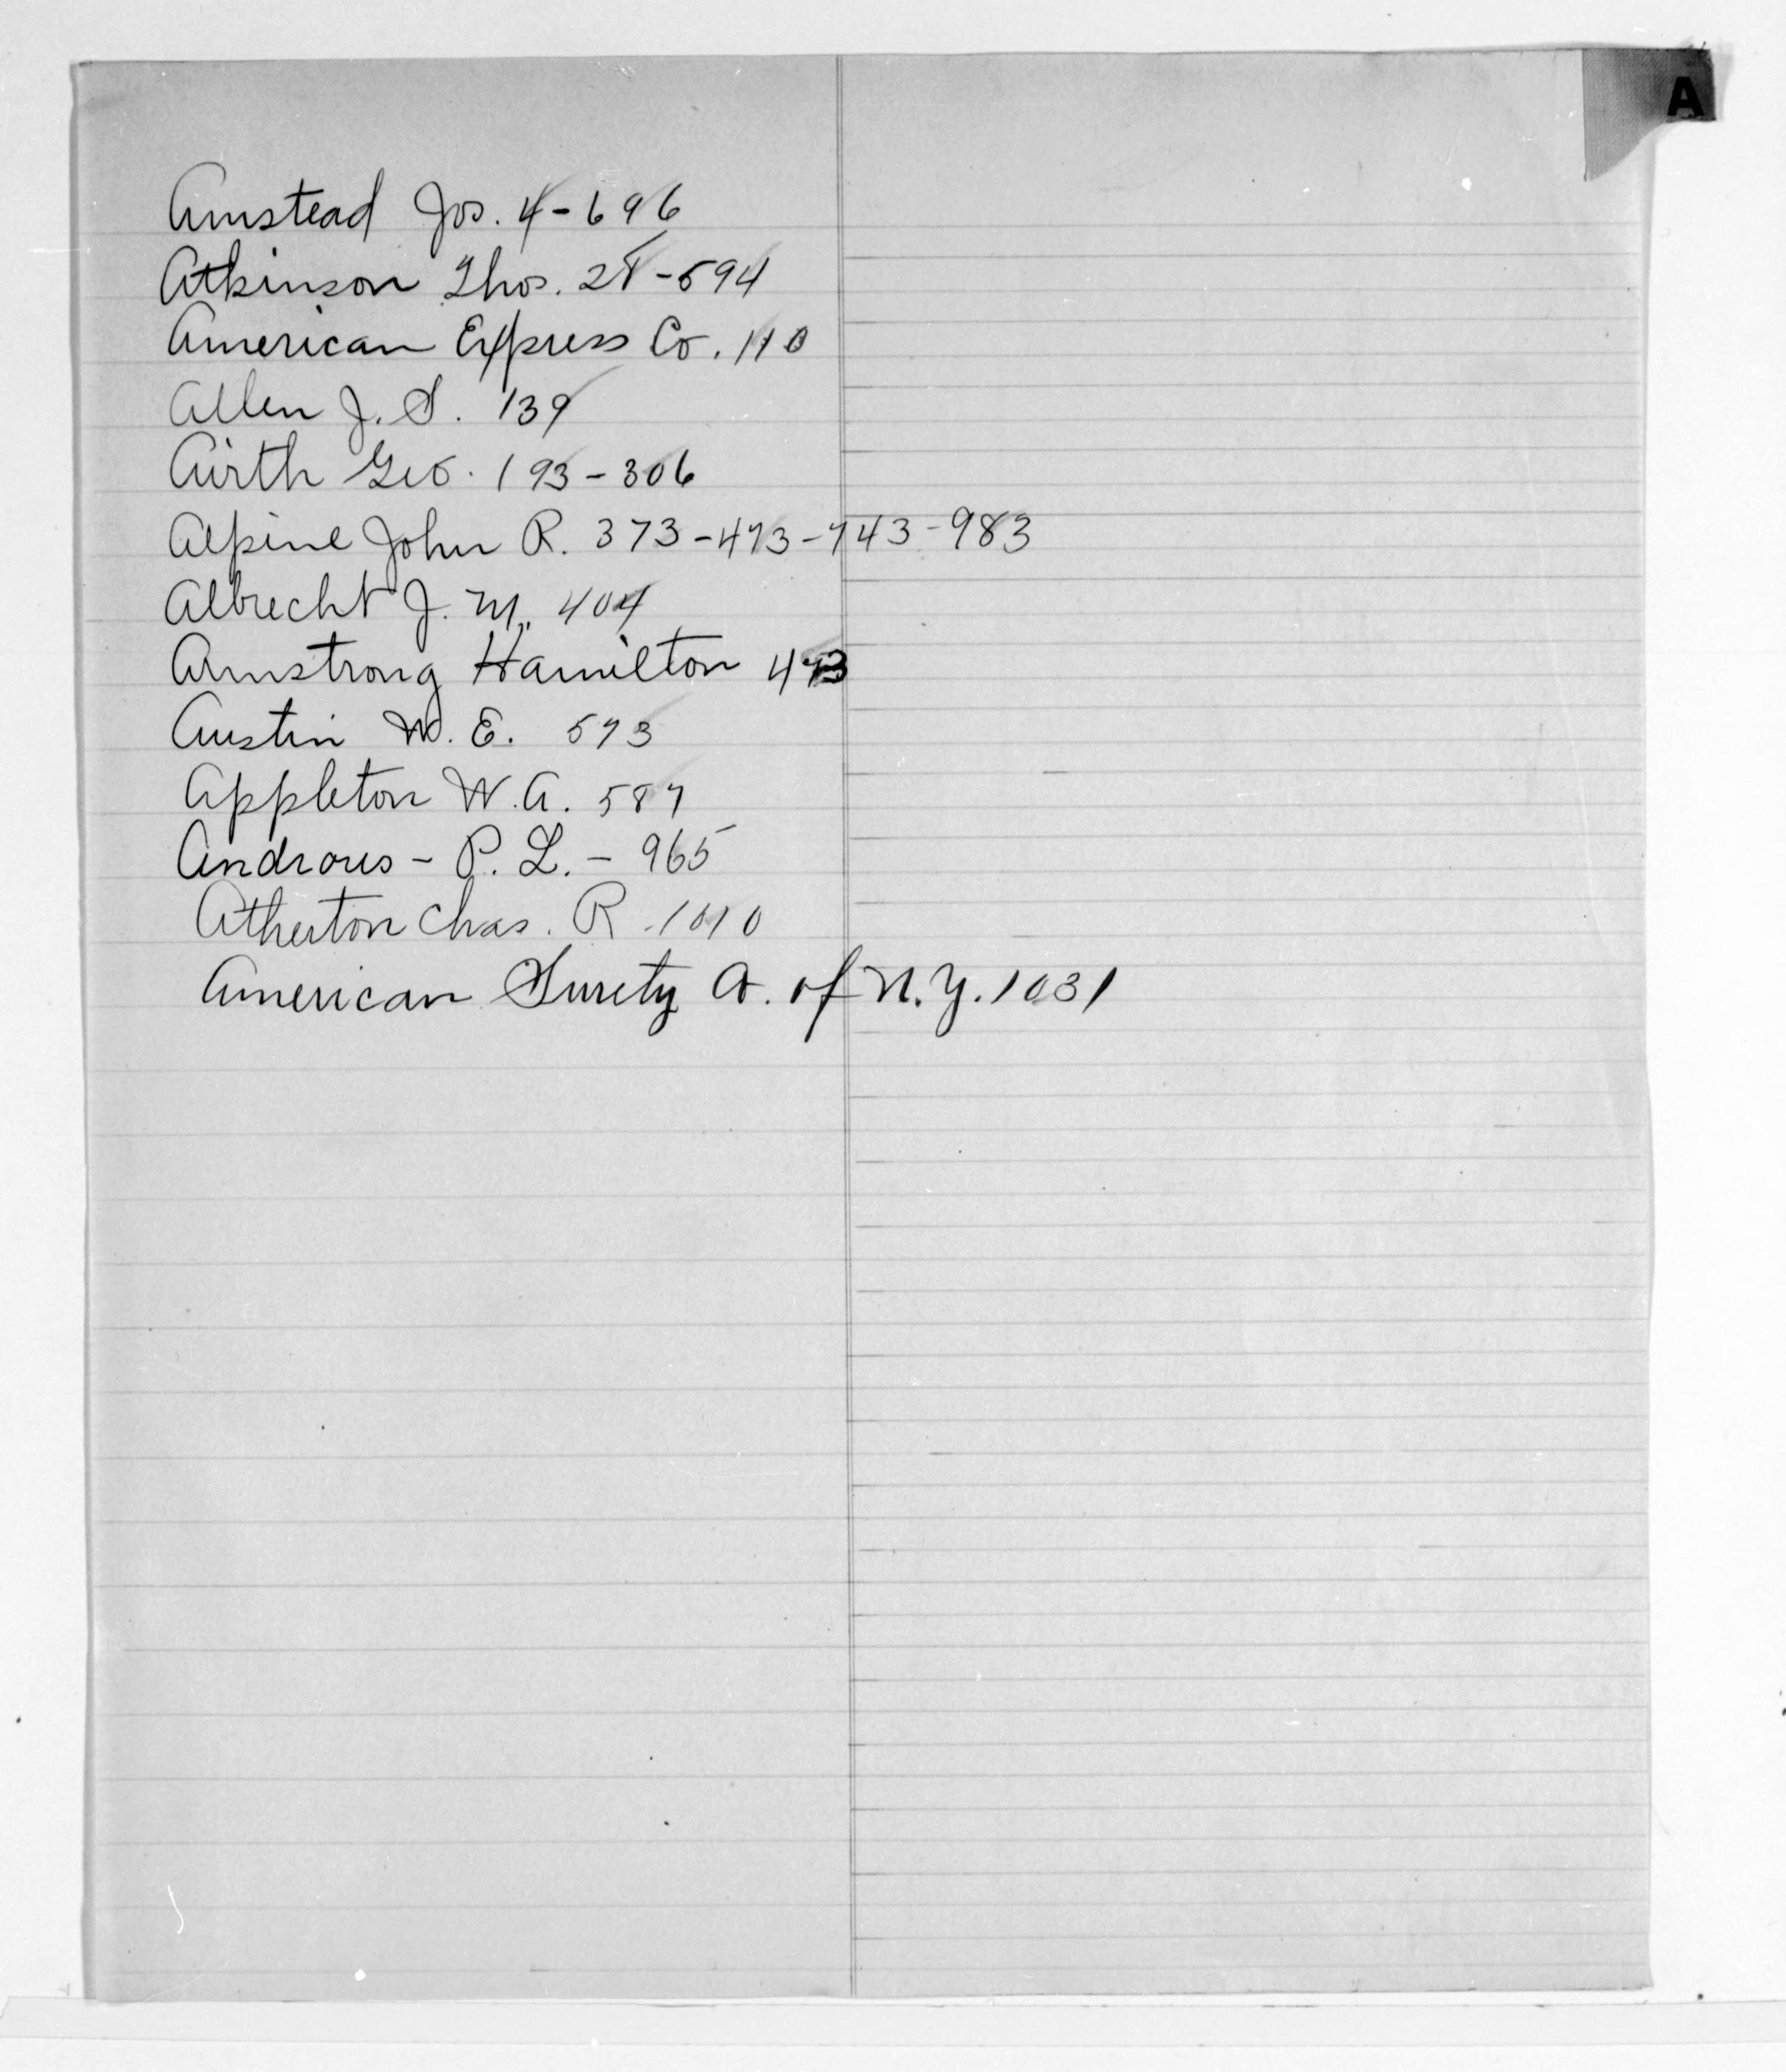 A
Armstead Jos. 4-696
Atkinson Thos. 28-594
American Express Co. 110
Allen J. S. 139
Airth Geo. 193-306
Alpine John R. 373-473-743-983
Albrecht J. M. 404
Armstrong Hamilton 473
Austin W. E. 573
Appleton W. A. 587
Androus - P. L. - 965
Atherton Chas. R. 1010
American Surety Co. of N.Y. 1031